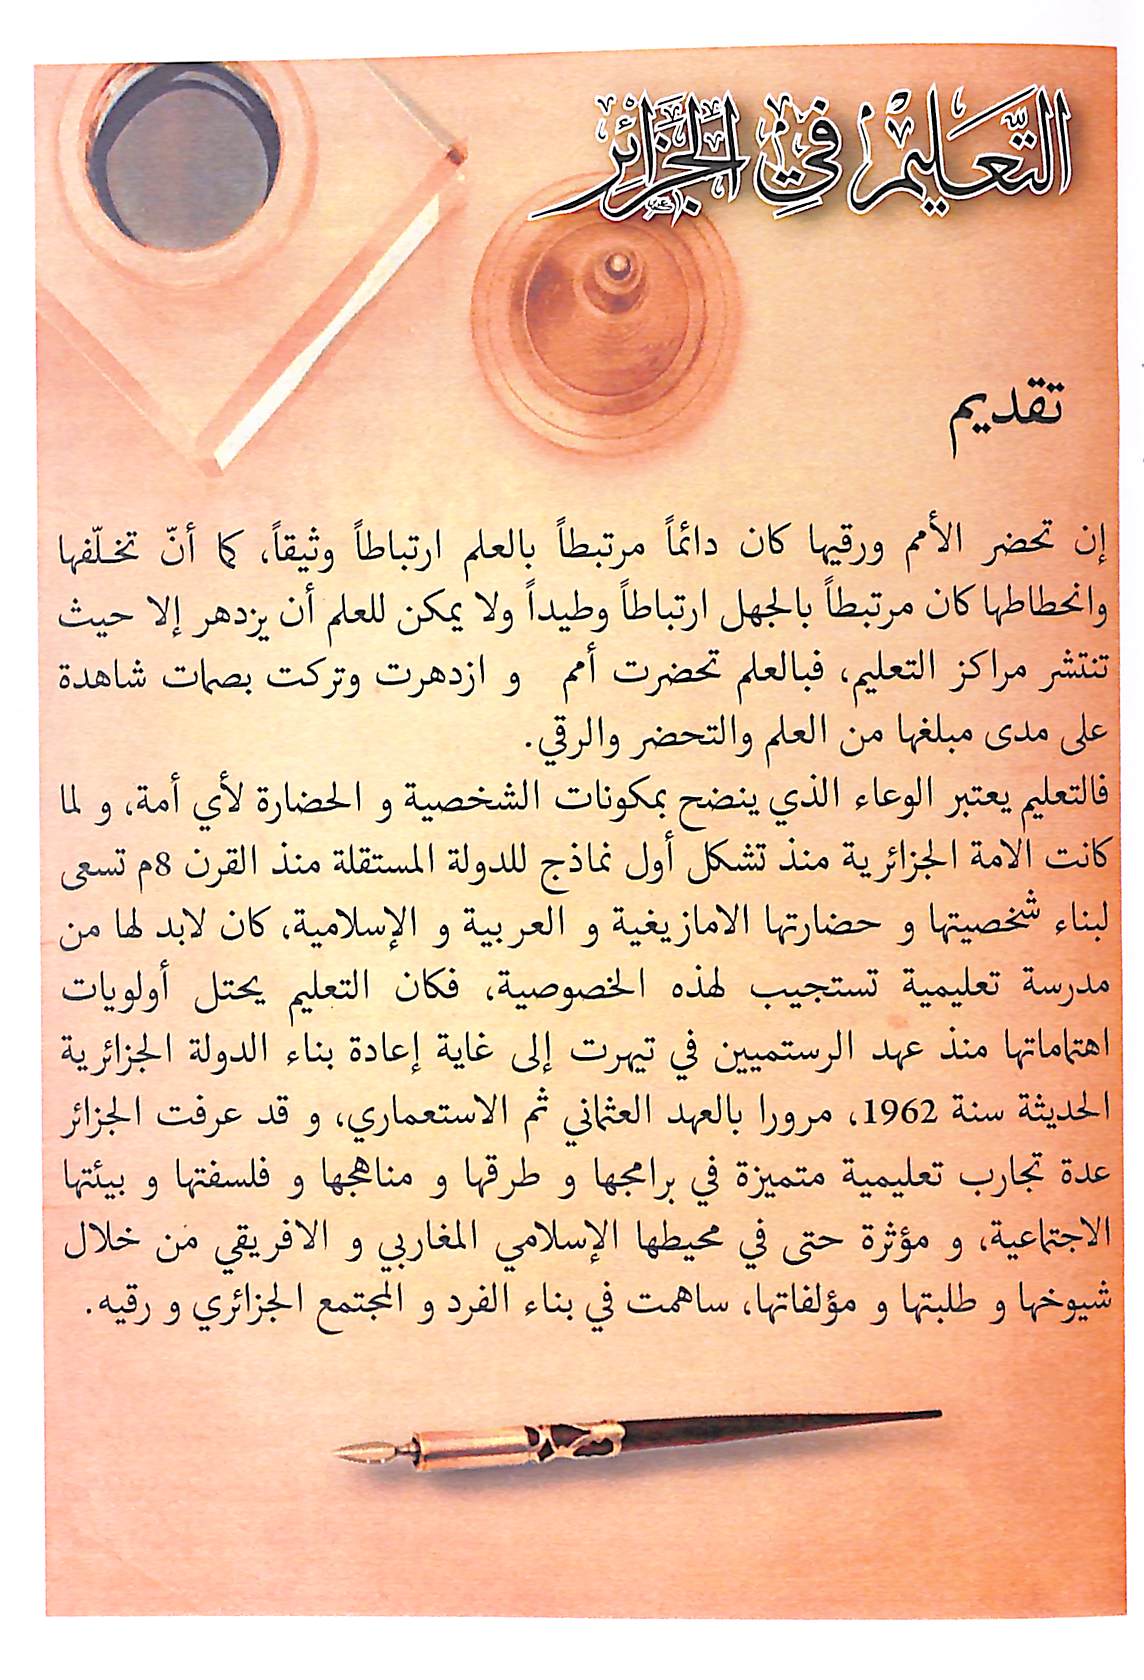 التَّعَليْمُ فِي الجَزَائِر
تقديم
إن تحضر الأمم ورقيها كان دائماً مرتبطاً بالعلم ارتباطاً وثيقاً، كما أنّ تخلّفها
وانحطاطها كان مرتبطاً بالجهل ارتباطاً وطيداً ولا يمكن للعلم أن يزدهر إلا حيث
تنتشر مراكز التعليم، فبالعلم تحضرت أمم و ازدهرت وتركت بصمات شاهدة
على مدى مبلغها من العلم والتحضر والرقي.
فالتعليم يعتبر الوعاء الذي ينضح بمكونات الشخصية و الحضارة لأي أمة، و لما
كانت الامة الجزائرية منذ تشكل أول نماذج للدولة المستقلة منذ القرن 8م تسعى
لبناء شخصيتها و حضارتها الامازيغية و العربية و الإسلامية، كان لابد لها من
مدرسة تعليمية تستجيب لهذه الخصوصية، فكان التعليم يحتل أولويات
اهتماماتها منذ عهد الرستميين في تيهرت إلى غاية إعادة بناء الدولة الجزائرية
الحديثة سنة 1962، مرورا بالعهد العثماني ثم الاستعماري، و قد عرفت الجزائر
عدة تجارب تعليمية متميزة في برامجها و طرقها و مناهجها و فلسفتها و بيئتها
الاجتماعية، و مؤثرة حتى في محيطها الإسلامي المغاربي و الافريقي من خلال
شيوخها و طلبتها و مؤلفاتها، ساهمت في بناء الفرد و المجتمع الجزائري و رقيه.